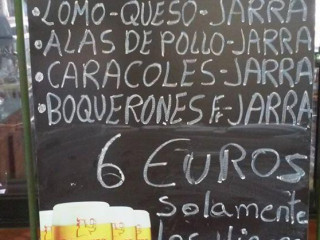 LOMO-QUESO-JARRA
ALAS DE POLLO-JARRA
CARACOLES-JARRA
BOQUERONES F-JARRA
6 EUROS
solamente
los